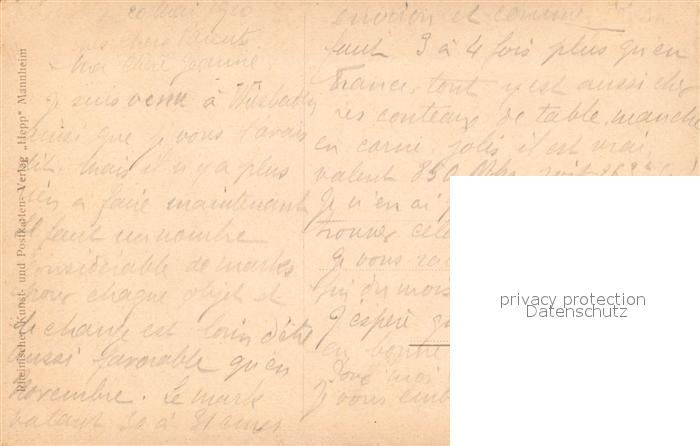 mai 1920
mes chers Parents
Ma chère Jeanne
je suis venu à Wiesbaden
ainsi que je vous l'avais
dit. Mais il n'y a plus
rien a faire maintenant
Il faut un nombre
Considérable de marks
pour chaque objet et
le change est loin d'être
aussi favorable qu'en
Novembre. Le mark
valant 30 à 31 cmes
environ et comme
faut 3 à 4 fois plus qu'en
France, tout y est aussi cher
Des couteaux de table, manche
en corne, jolis il est vrai,
valent 850 Mks, soit
Je n'en ai
trouver cela
Je vous
fin du mois
J'espère
en bonne
pour moi
Je vous
Rheinischer Kunst- und Postkarten-Verlag „Hepp" Mannheim
privacy protection
Datenschutz